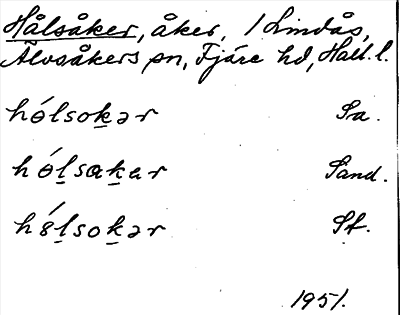 Hålsåker, åker, 1 Lindås,
Älvsåkers sn, Fjäre hd, Hall. l.
hó̀lsok̲ər Sa.
hɵ́l̲sɑk̲ar Sand.
h8́l̲sok̲ər St.
1951.